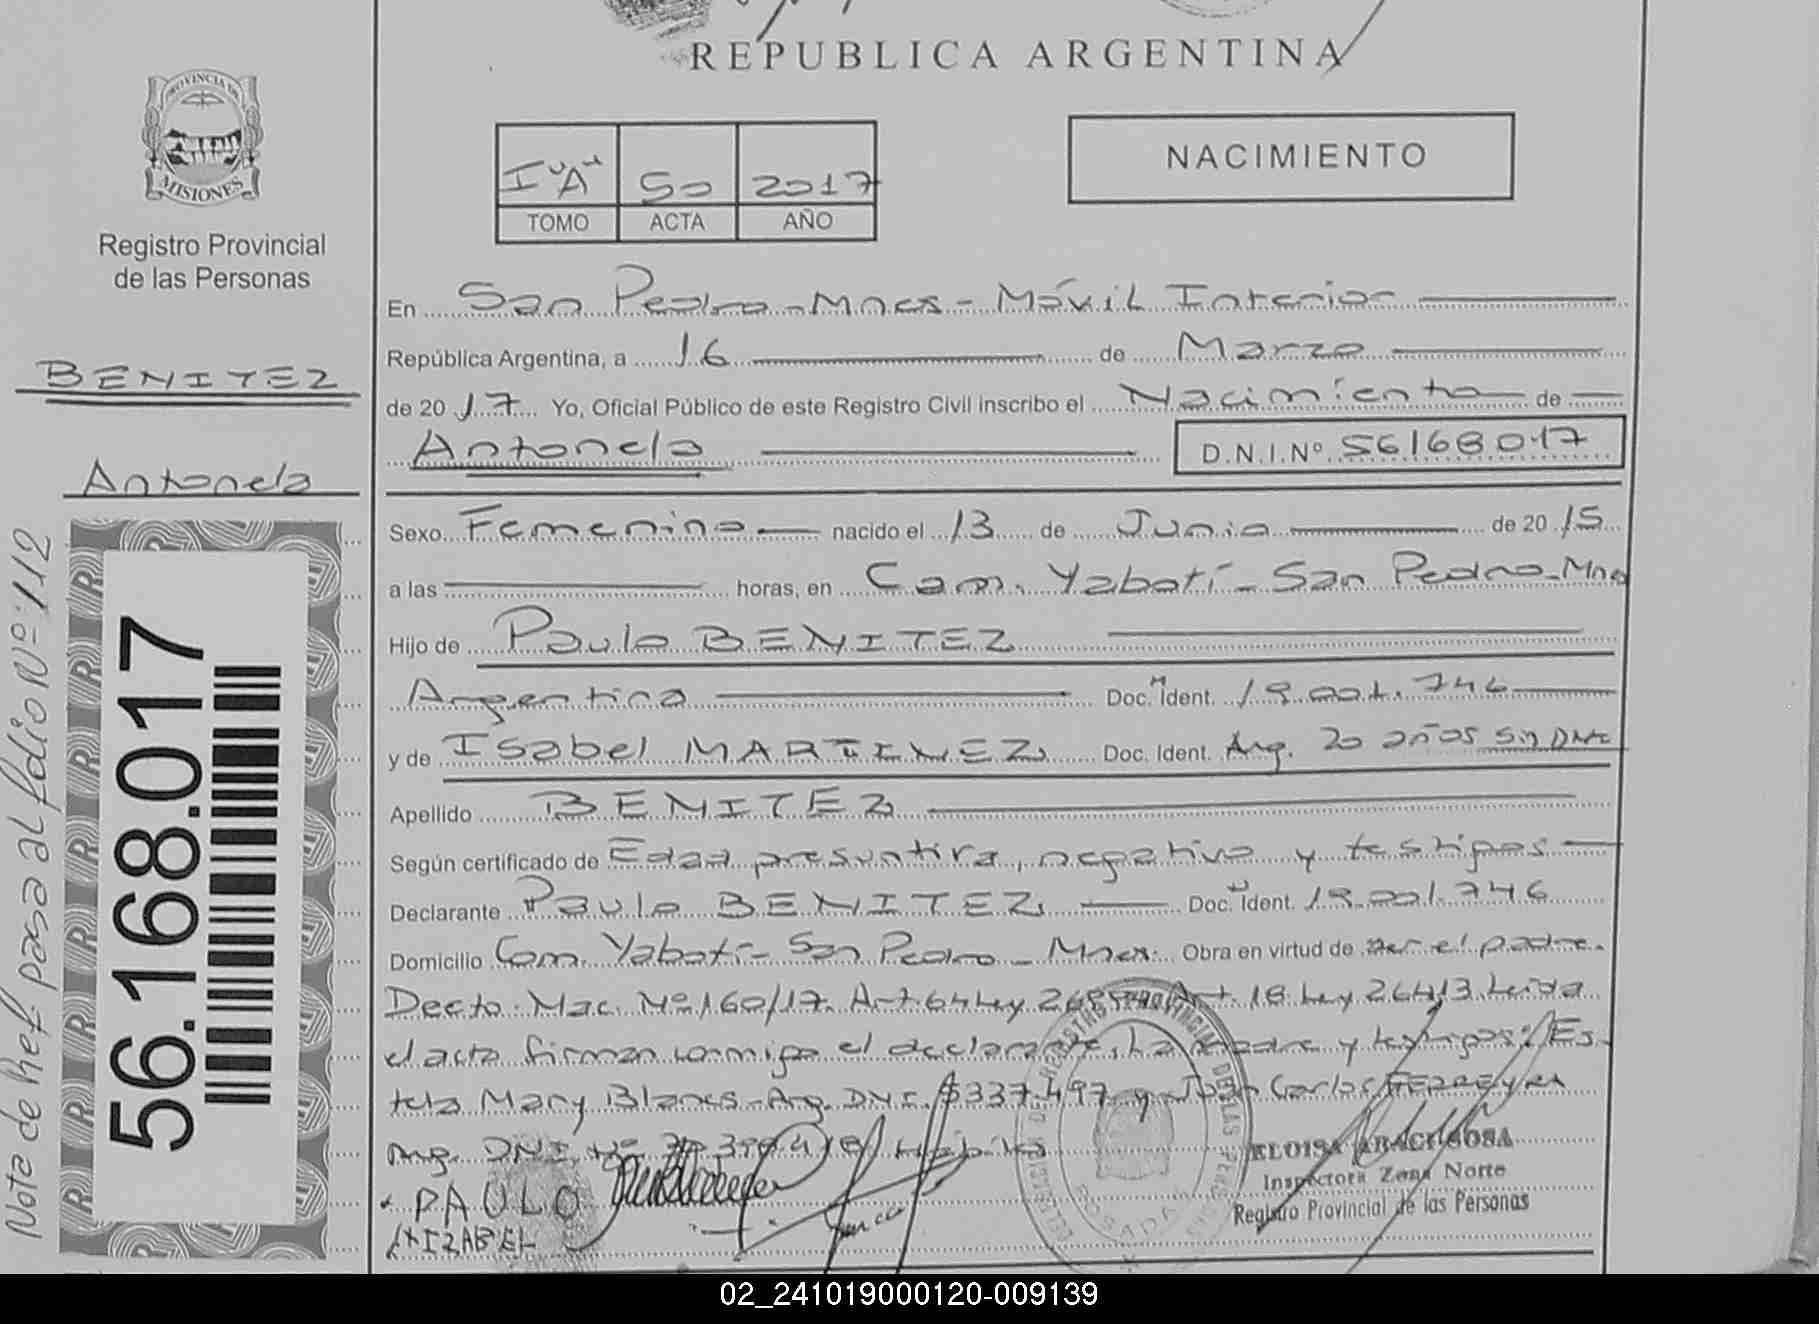 REPUBLICA ARGENTINA
PROVINCIA DE
MISIONES
Registro Provincial
de las Personas
BENITEZ
Antonela
Nota de Ref. pasa al folio Nº 112
56.168.017
I "A" 50 2017
TOMO ACTA AÑO
NACIMIENTO
En San Pedro - Mnes - Móvil Interior
República Argentina, a 16 de Marzo
de 2017 Yo, Oficial Público de este Registro Civil inscribo el Nacimiento de
Antonela D.N.I.Nº 56168017
Sexo Femenino nacido el 13 de Junio de 2015
a las horas, en Com. Yabotí - San Pedro - Mnes
Hijo de Paulo BENITEZ
Argentina Doc. Ident. 19.001.746
y de Isabel MARTINEZ Doc. Ident. Arg. 20 años sin DNI
Apellido BENITEZ
Según certificado de Edad presuntiva, negativo y testigos
Declarante Paulo BENITEZ Doc. Ident. 19.001.746
Domicilio Com. Yabotí - San Pedro - Mnes. Obra en virtud de ser el padre.
Decto. Nac. Nº 160/17. Art. 64 Ley Art. 18 Ley 26413. Leída
el acta firman conmigo el declarante, la madre y testigos: Es
tela Mary Blanes - Arg. DNI. 337.497 y Juan Carlos FERREYRA
Arg. DNI Nº
PAULO
IZABEL
REGISTRO PROVINCIAL DE LAS
POSADAS
ELOISA ARACI SOSA
Inspectora Zona Norte
Registro Provincial de las Personas
02_241019000120-009139